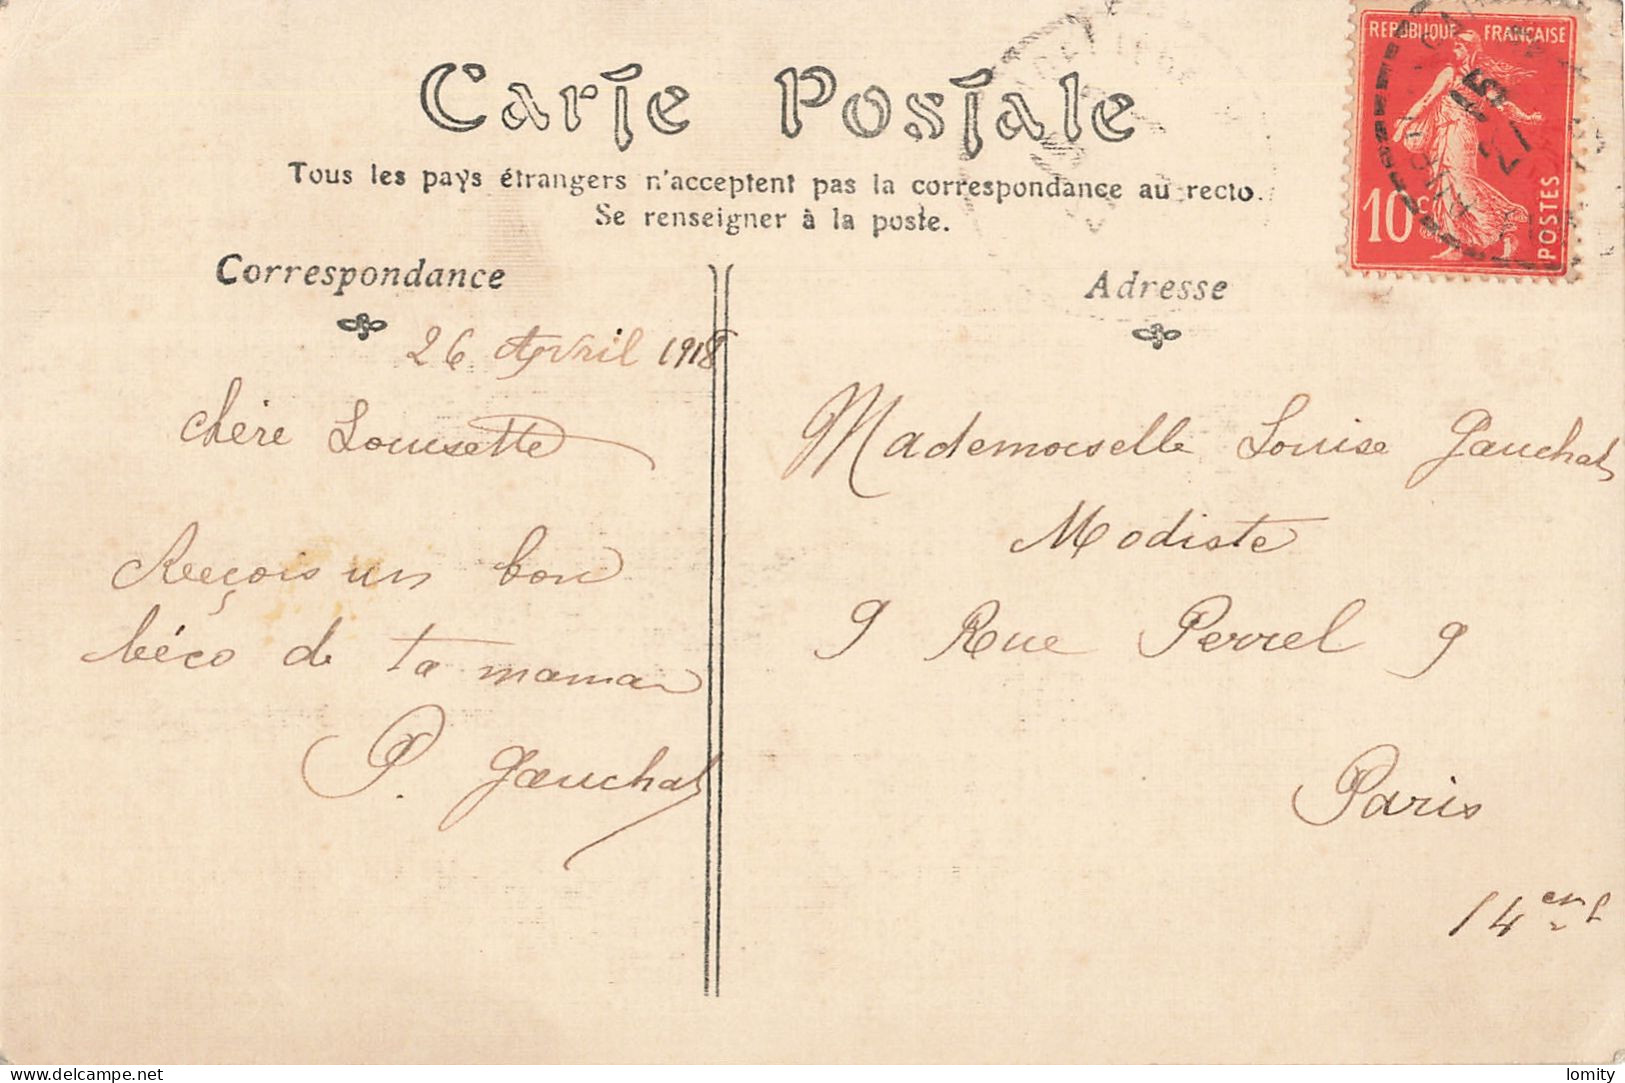 Carte Postale
Tous les pays étrangers n'acceptent pas la correspondance au recto.
Se renseigner à la poste.
Correspondance
Adresse
REPUBLIQUE FRANÇAISE
10c
POSTES
26 Avril 1918
chère Louisette
Reçois un bon
béco de ta maman
P. Gauchat
Mademoiselle Louise Gauchat
Modiste
9 Rue Perrel 9
Paris
14
delcampe.net
lomity